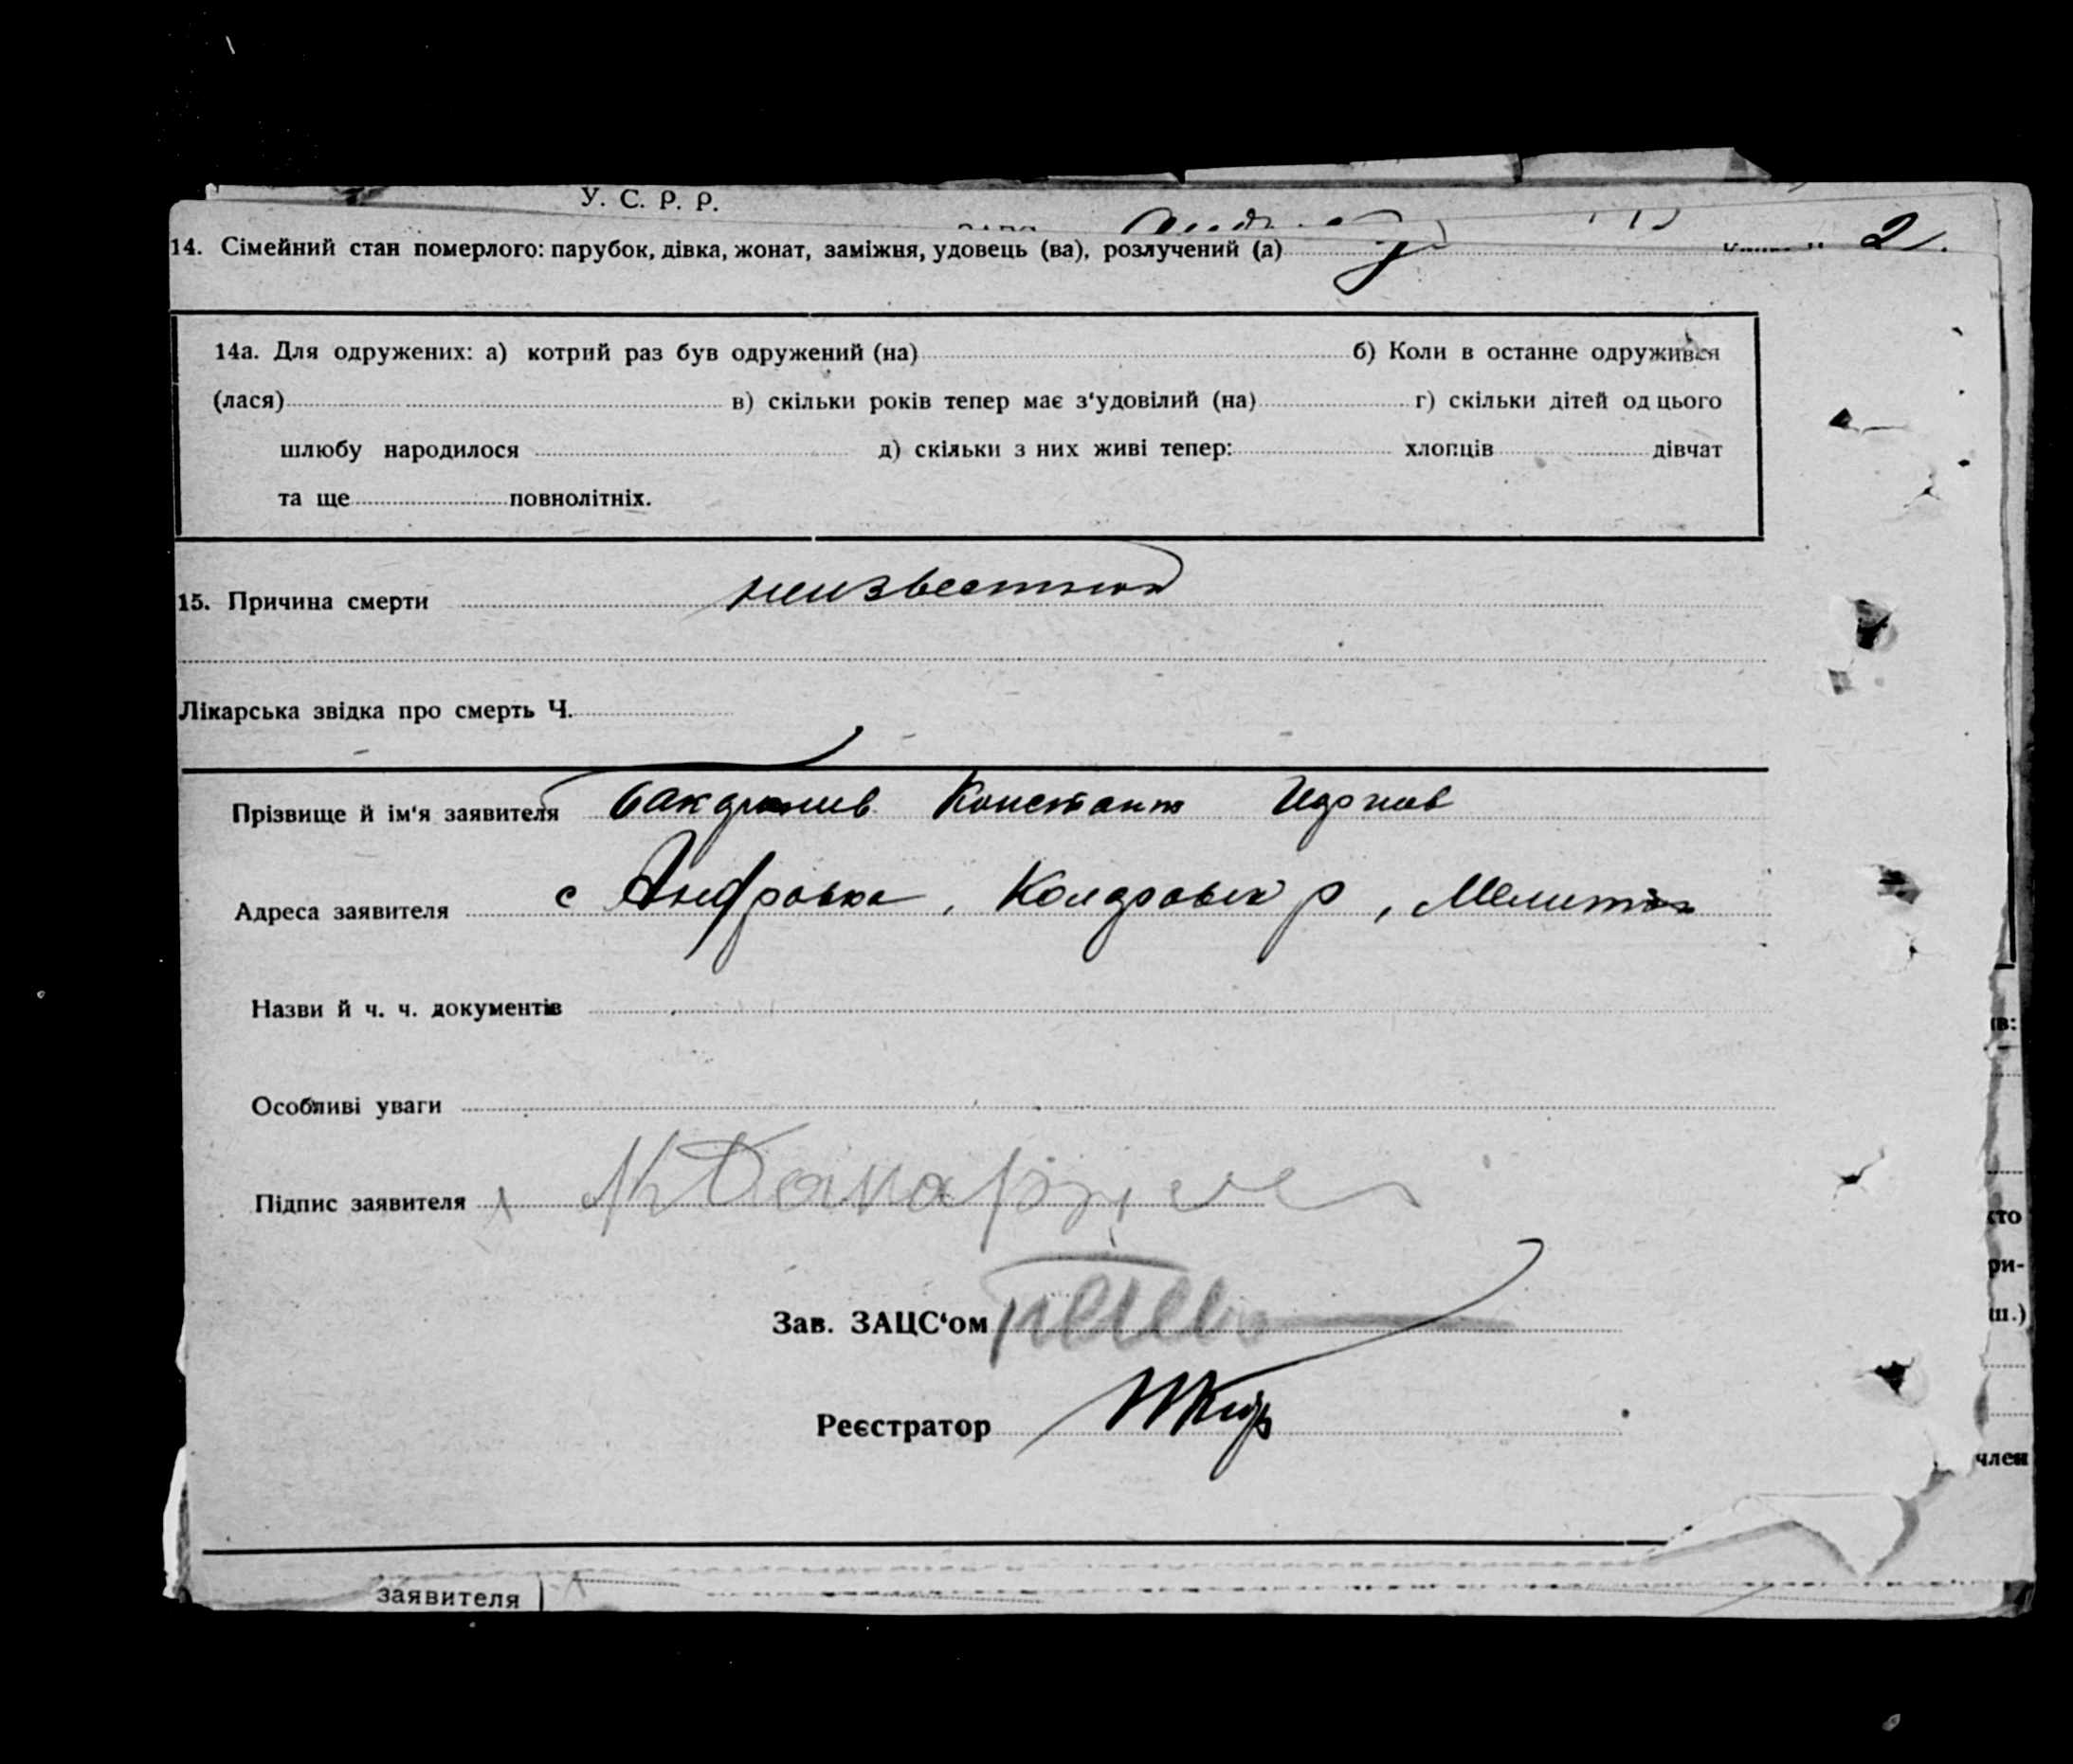 У. С. Р. Р.
2.
14. Сімейний стан померлого: парубок, дівка, жонат, заміжня, удовець (ва), розлучений (а)
14а. Для одружених: а) котрий раз був одружений (на) б) Коли в останне одружився
(лася) в) скільки років тепер має з‘удовілий (на) г) скільки дітей од цього
шлюбу народилося д) скільки з них живі тепер: хлопців дівчат
та ще повнолітніх.
15. Причина смерти неизвестной
Лікарська звідка про смерть Ч.
Прізвище й ім‘я заявителя Констант
Адреса заявителя с , р, Мелитоп
Назви й ч. ч. документів
Особливі уваги
Підпис заявителя
Зав. ЗАЦС‘ом
Реєстратор
заявителя
ів:
хто
ри-
ш.)
член